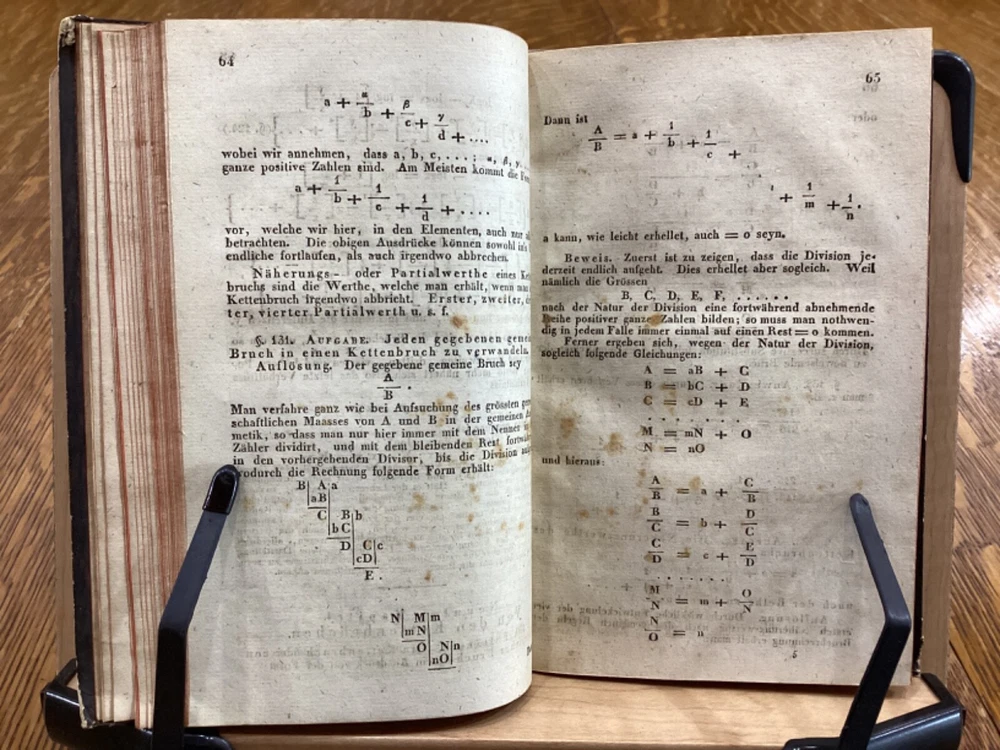 64
a + α/b + β/c + γ/d + ....
wobei wir annehmen, dass a, b, c, ....; α, β, γ,
ganze positive Zahlen sind. Am Meisten kommt die
a + 1/b + 1/c + 1/d + ....
vor, welche wir hier, in den Elementen, auch nur
betrachten. Die obigen Ausdrücke können sowohl
endliche fortlaufen, als auch irgendwo abbrechen.
Näherungs- oder Partialwerthe eines
bruchs sind die Werthe, welche man erhält, wenn man
Kettenbruch irgendwo abbricht. Erster, zweiter,
ter, vierter Partialwerth u. s. f.
§. 131. AUFGABE. Jeden gegebenen
Bruch in einen Kettenbruch zu verwandeln.
Auflösung. Der gegebene gemeine Bruch sey
A/B.
Man verfahre ganz wie bei Aufsuchung des grössten
schaftlichen Maasses von A und B in der gemeinen
metik, so dass man nur hier immer mit dem Nenner
Zähler dividirt, und mit dem bleibenden Rest
in den vorhergehenden Divisor, bis die Division
wodurch die Rechnung folgende Form erhält:
B| A|a
|aB
C| B|b
|bC
D| C|c
|cD|
E.
N| M|m
|mN
O| N|n
|nO|
65
Dann ist
A/B = a + 1/b + 1/c +
+ 1/m + 1/n.
a kann, wie leicht erhellet, auch = o seyn.
Beweis. Zuerst ist zu zeigen, dass die Division je-
derzeit endlich aufgeht. Dies erhellet aber sogleich. Weil
nämlich die Grössen
B, C, D, E, F, ......
nach der Natur der Division eine fortwährend abnehmende
Reihe positiver ganze Zahlen bilden; so muss man nothwen-
dig in jedem Falle immer einmal auf einen Rest = o kommen.
Ferner ergeben sich, wegen der Natur der Division,
sogleich folgende Gleichungen:
A = aB + C
B = bC + D
C = cD + E
.......
M = mN + O
N = nO
und hieraus:
A/B = a + C/B
B/C = b + D/C
C/D = c + E/D
.......
M/N = m + O/N
N/O = n
5